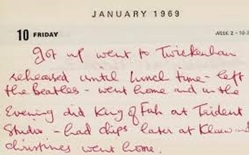 JANUARY 1969
10 FRIDAY
WEEK 2 · 10-3
Got up went to Twickenham
rehearsed until lunch time - left
the Beatles - went home and in the
evening did King of Fuh at Trident
Studio - had chips later at Klaus and
Christines went home.